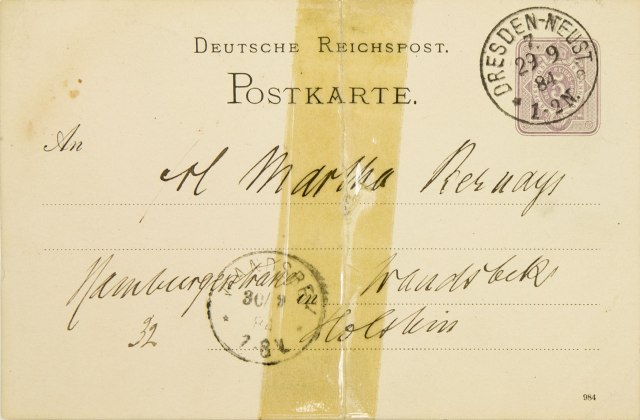 DEUTSCHE REICHSPOST.
POSTKARTE.
DRESDEN-NEUST.
7.
29 9
84
* 1-2N.
An
Frl Martha Bernays
WANDSBEK
30/9
84
7-8V.
in Wandsbek
Hamburgerstrasse
32
Holstein
984